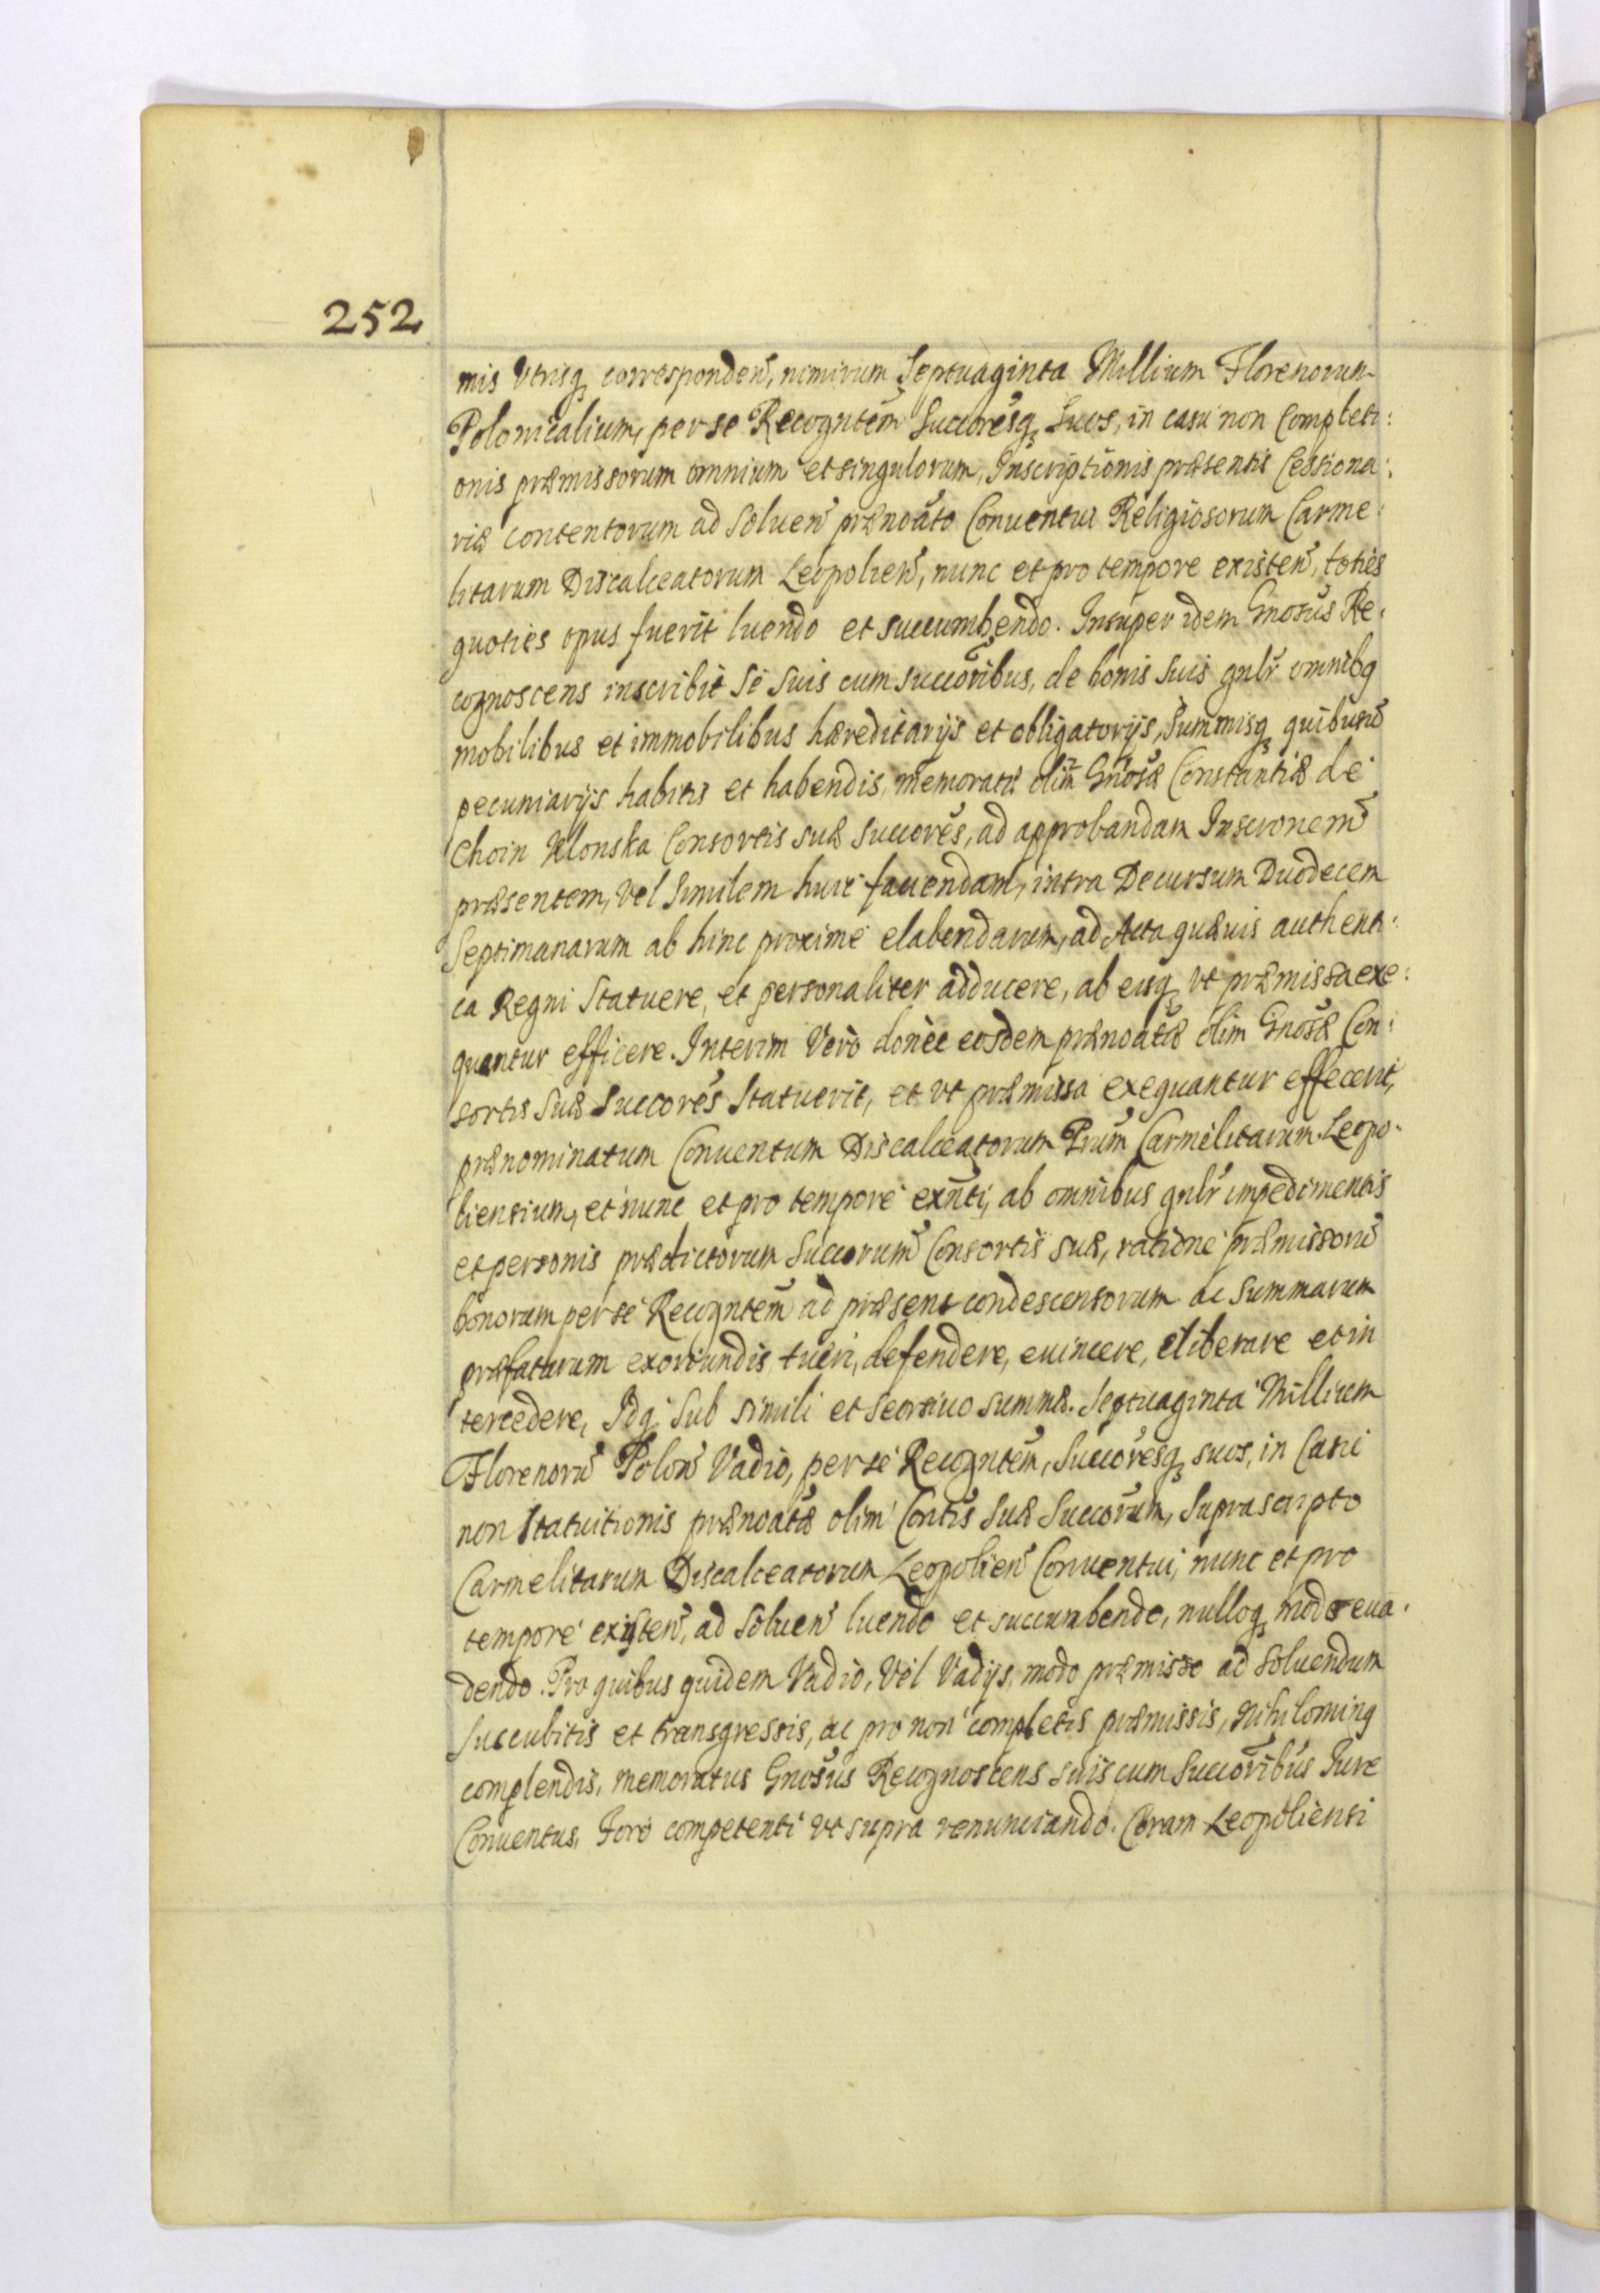 252
mis Utrisq, corresponden', nimirum Septuaginta Millium Florenorum
Polonicalium, per se Recogntēm Succoresq, Suos, in casu non Completi:
onis præmissorum omnium et singulorum, Inscriptionis præsentis Cessiona:
riæ contentorum ad Soluen' prænoāto Conuentui Religiosorum Carme:
litarum Discalceatorum Leopolien', nunc et pro tempore existen', toties
quoties opus fuerit luendo et succumbendo. Insuper idem Gnosus Re:
cognoscens inscribit Se Suis cum succoribus, de bonis Suis gnlr omnibq
mobilibus et immobilibus hæreditarijs et obligatorijs, Summisq, quibusv̄
pecuniarijs habitis et habendis, memoratæ olim Gnosæ Constantiæ de
Choin Ulonska Consortis suæ Succores, ad approbandam Inscronem
præsentem, vel Similem huic fauendam, intra Decursum Duodecem
Septimanarum ab hinc proxime elabendarum, ad Acta quæuis authenti:
ca Regni Statuere, et personaliter adducere, ab eisq, vt præmissa exe:
quantur efficere. Interim Vero donec eosdem prænoatæ olim Gnosæ Con:
sortis Suæ Succores Statuerit, et vt præmissa exequantur effecerit,
prænominatum Conuentum Discalceatorum Prum Carmelitarum Leopo:
liensium, et nunc et pro tempore exnti, ab omnibus gnlr impedimentis
et personis prædictorum Succorum Consortis suæ, ratione præmissorū
bonorum per se Recogntēm ad præsens condescensorum ac Summarum
præfatarum exoriundis tueri, defendere, euincere, eliberare et in
tercedere, Idq, Sub simili et seorsiuo summæ. Septuaginta Millium
Florenorū Polon' Vadio, per se Recogntēm, Succoresq, suos, in Casu
non Statuitionis prænoatæ olim Contis Suæ Succorum, Suprascripto
Carmelitarum Discalceatorum Leopolien' Conuentui, nunc et pro
tempore existen', ad Soluen' luendo et succumbendo, nulloq, modo eua:
dendo. Pro quibus quidem Vadio, Vel Vadijs, modo præmisso ad Soluendum
Succubitis et transgressis, ac pro non completis præmissis, Nihilominq
complendis, memoratus Gnosus Recognoscens Suis cum Succoribus Jure
Conuentus, Foro competenti vt supra renunciando. Coram Leopoliensi